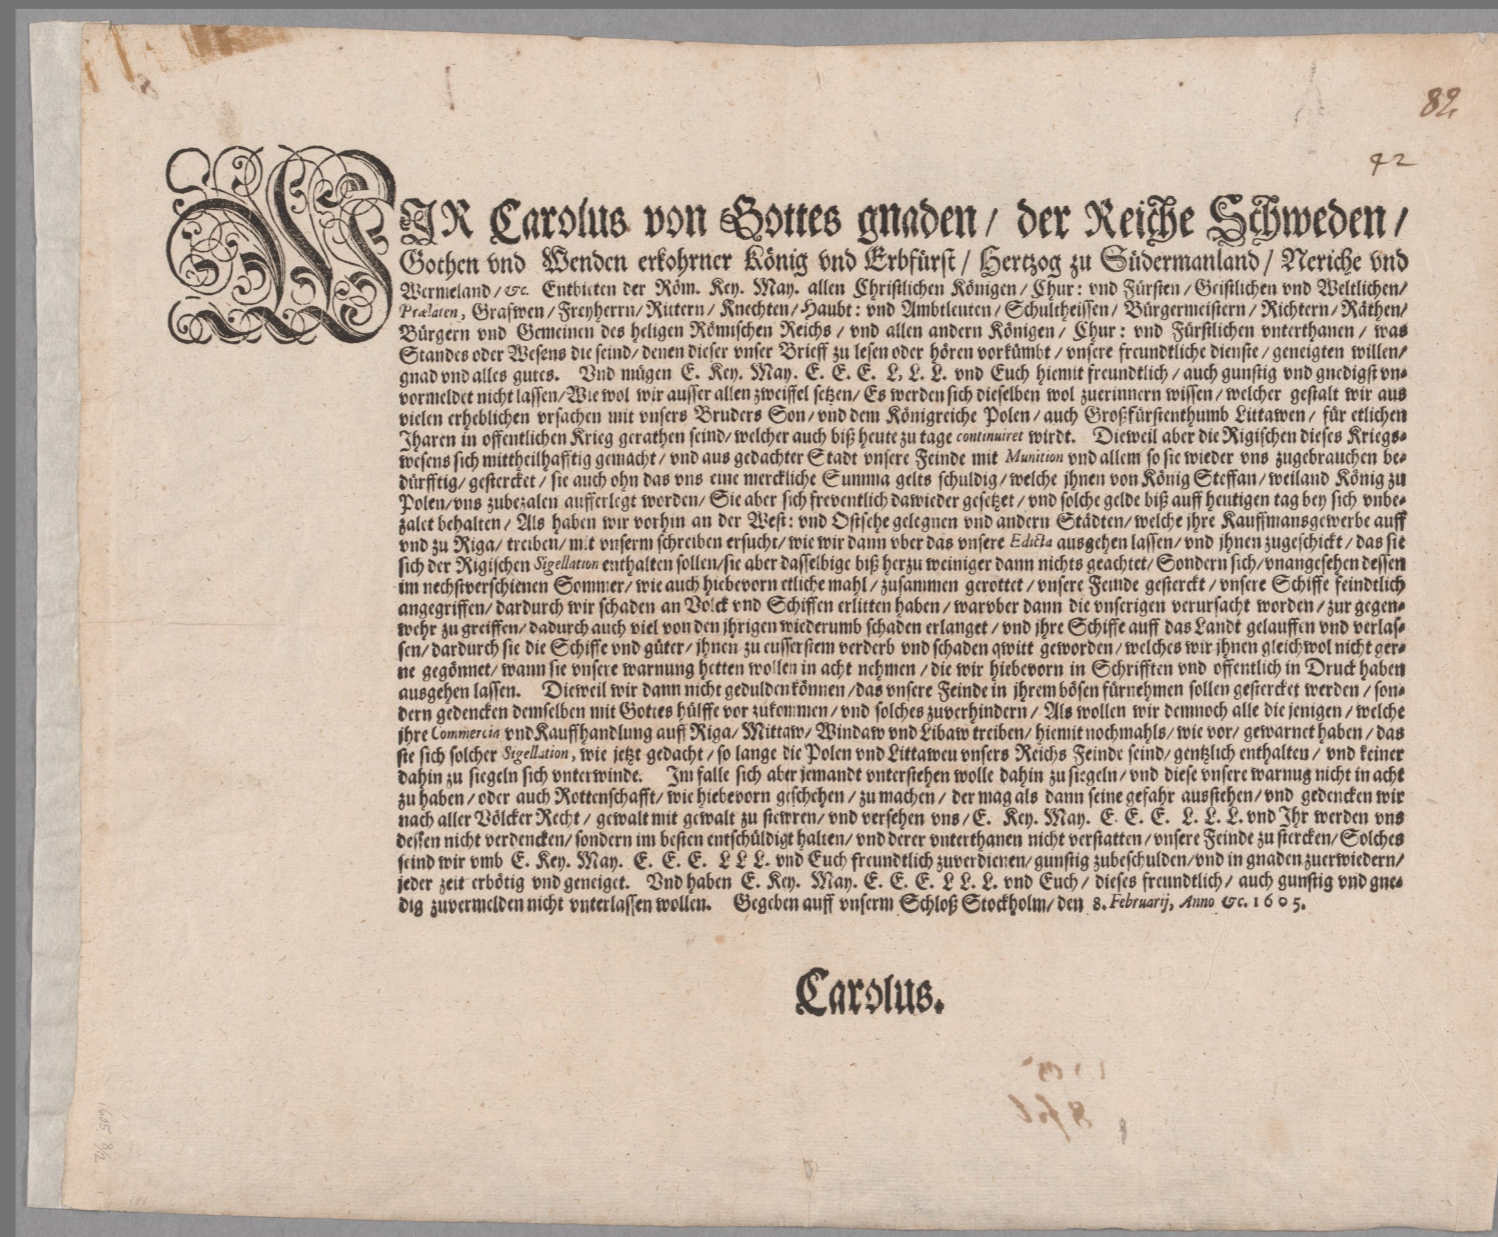 82
42
WIR Carolus von Gottes gnaden/ der Reiche Schweden/
Gothen vnd Wenden erkohrner König vnd Erbfürst/ Hertzog zu Südermanland/ Neriche vnd
Wermeland/ &c. Entbieten der Röm. Key. May. allen Christlichen Königen/ Chur: vnd Fürsten/ Geistlichen vnd Weltlichen/
Prælaten, Graffwen/ Freyherrn/ Rittern/ Knechten/ Haubt: vnd Ambtleuten/ Schultheissen/ Bürgermeistern/ Richtern/ Räthen/
Bürgern vnd Gemeinen des heligen Römischen Reichs/ vnd allen andern Königen/ Chur: vnd Fürstlichen vnterthanen/ was
Standes oder Wesens die seind/ denen dieser vnser Brieff zu lesen oder hören vorkümbt/ vnsere freundtliche dienste/ geneigten willen/
gnad vnd alles gutes. Vnd mügen E. Key. May. E. E. E. L, L. L. vnd Euch hiemit freundtlich/ auch gunstig vnd gnedigst vn-
vormeldet nicht lassen/ Wie wol wir ausser allen zweiffel setzen/ Es werden sich dieselben wol zuerinnern wissen/ welcher gestalt wir aus
vielen erheblichen vrsachen mit vnsers Bruders Son/ vnd dem Königreiche Polen/ auch Großfürstenthumb Littawen/ für etlichen
Jharen in offentlichen Krieg gerathen seind/ welcher auch biß heute zu tage continuiret wirdt. Dieweil aber die Rigischen dieses Kriegs-
wesens sich mittheilhafftig gemacht/ vnd aus gedachter Stadt vnsere Feinde mit Munition vnd allem so sie wieder vns zugebrauchen be-
dürfftig/ gestercket/ sie auch ohn das vns eine merckliche Summa gelts schuldig/ welche jhnen von König Steffan/ weiland König zu
Polen/ vns zubezalen aufferlegt worden/ Sie aber sich freventlich dawieder gesetzet/ vnd solche gelde biß auff heutigen tag bey sich vnbe-
zalet behalten/ Als haben wir vorhin an der West: vnd Ostsehe gelegnen vnd andern Städten/ welche jhre Kauffmansgewerbe auff
vnd zu Riga/ treiben/ mit vnserm schreiben ersucht/ wie wir dann vber das vnsere Edicta ausgehen lassen/ vnd jhnen zugeschickt/ das sie
sich der Rigischen Sigellation enthalten sollen/ sie aber dasselbige biß herzu weiniger dann nichts geachtet/ Sondern sich/ vnangesehen dessen
im nechstverschienen Sommer/ wie auch hiebevorn etliche mahl/ zusammen gerottet/ vnsere Feinde gesterckt/ vnsere Schiffe feindtlich
angegriffen/ dardurch wir schaden an Volck vnd Schiffen erlitten haben/ warvber dann die vnserigen verursacht worden/ zur gegen-
wehr zu greiffen/ dadurch auch viel von den jhrigen wiederumb schaden erlanget/ vnd jhre Schiffe auff das Landt gelauffen vnd verlas-
sen/ dardurch sie die Schiffe vnd güter/ jhnen zu eusserstem verderb vnd schaden qwitt geworden/ welches wir jhnen gleichwol nicht ger-
ne gegönnet/ wann sie vnsere warnung hetten wollen in acht nehmen/ die wir hiebevorn in Schrifften vnd offentlich in Druck haben
ausgehen lassen. Dieweil wir dann nicht gedulden können/ das vnsere Feinde in jhrem bösen fürnehmen sollen gestercket werden/ son-
dern gedencken demselben mit Gottes hülffe vor zukommen/ vnd solches zuverhindern/ Als wollen wir demnoch alle die jenigen/ welche
jhre Commercia vnd Kauffhandlung auff Riga/ Mittaw/ Windaw vnd Libaw treiben/ hiemit nochmahls/ wie vor/ gewarnet haben/ das
sie sich solcher Sigellation, wie jetzt gedacht/ so lange die Polen vnd Littawen vnsers Reichs Feinde seind/ gentzlich enthalten/ vnd keiner
dahin zu siegeln sich vnterwinde. Im falle sich aber jemandt vnterstehen wolle dahin zu siegeln/ vnd diese vnsere warnug nicht in acht
zu haben/ oder auch Rottenschafft/ wie hiebevorn geschehen/ zu machen/ der mag als dann seine gefahr ausstehen/ vnd gedencken wir
nach aller Völcker Recht/ gewalt mit gewalt zu stewren/ vnd versehen vns/ E. Key. May. E. E. E. L. L. L. vnd Ihr werden vns
dessen nicht verdencken/ sondern im besten entschüldigt halten/ vnd derer vnterthanen nicht verstatten/ vnsere Feinde zu stercken/ Solches
seind wir vmb E. Key. May. E. E. E. L L L. vnd Euch freundtlich zuverdienen/ gunstig zubeschulden/ vnd in gnaden zuerwiedern/
jeder zeit erbötig vnd geneiget. Vnd haben E. Key. May. E. E. E. L L. L. vnd Euch/ dieses freundtlich/ auch gunstig vnd gne-
dig zuvermelden nicht vnterlassen wollen. Gegeben auff vnserm Schloß Stockholm/ den 8. Februarij, Anno &c. 1605.
Carolus.
1605 8/2